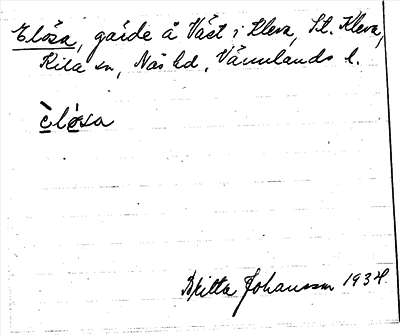 Elósa, gärde å Väst i Kleva, St. Kleva,
Kila sn, Näs hd, Värmlands l.
èlósa
Britta Johansson 1934.